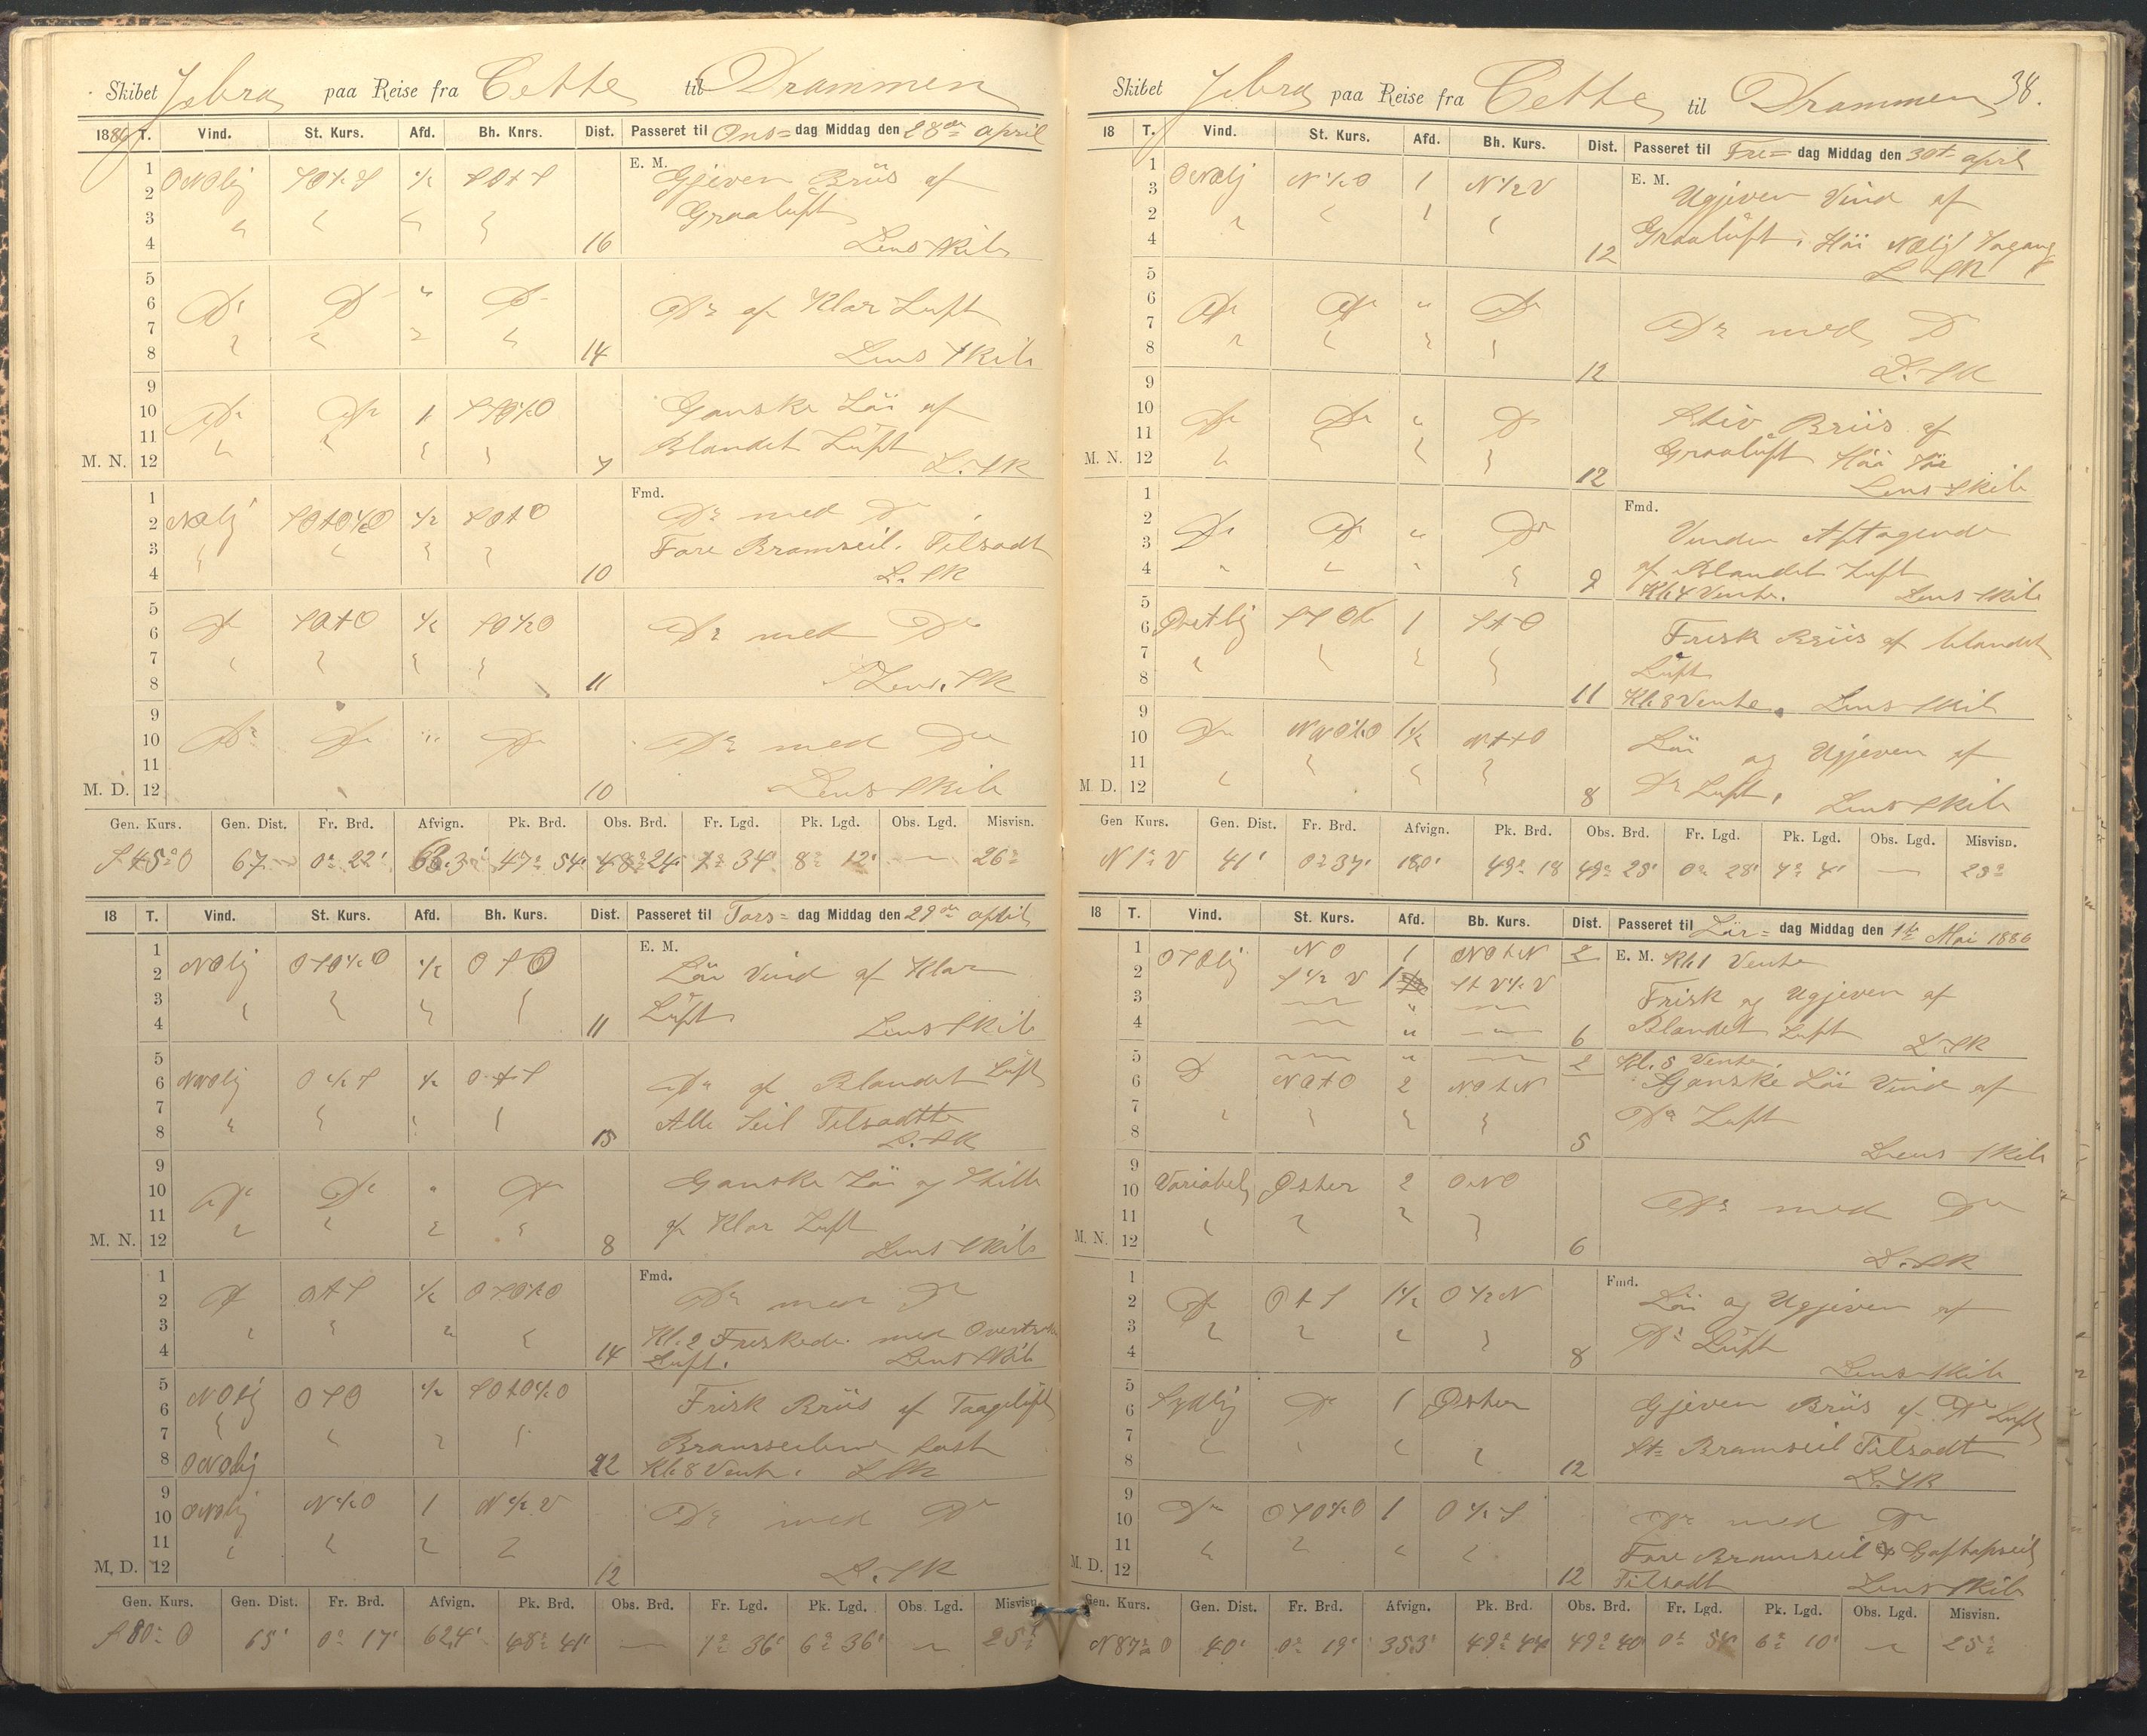 Skibet Jebra paa Reise fra Cette til Drammen
1886 T. Vind. St. Kurs. Afd. Bh. Knrs. Dist. Passeret til Ons= dag Middag den 28de april
1 2 3 4 ONOlij ½ 16 E. M. Gjeven Briis af
Graaluft
Lens Skib
5 6 7 8 Do D Do 14 Do af Klar Luft
Lens Skib
9 10 11 M. N. 12 Do Do 1 7 Ganske Löi af
Blandet Luft
L. Sk
1 2 3 4 NOlij ½ SOtO 10 Fmd. Do med Do
Fore Bramseil. Tilsadt
L. Sk
5 6 7 8 Do SOtO ½ SO½O 11 Do med Do
Lens. Sk
9 10 11 M. D. 12 Do Do " Do 10 Do med Do
Lens Skib
Gen. Kurs. Gen. Dist. Fr. Brd. Afvign. Pk. Brd. Obs. Brd. Fr. Lgd. Pk. Lgd. Obs. Lgd. Misvisn.
S 45° O 67 0° 22' 47° 54' 48° 24' 1° 34' 8° 12' — 26°
18 T. Vind. St. Kurs. Afd. Bh. Kurs. Dist. Passeret til Tors= dag Middag den 29de april
1 2 3 4 NOlij OSO½O ½ OSO 11 E. M. Löi Vind af Klar
Luft
Lens Skib
5 6 7 8 NNOlij O½S ½ OtS 15 Do af Blandet Luft
Alle Seil Tilsadte
L. Sk
9 10 11 M. N. 12 Do Do " Do 8 Ganske Löi og Stille
af Klar Luft
Lens Skib
1 2 3 4 Do OtS ½ 14 Fmd. Do med Do
Kl. 2 Friskede med Overtruk
Luft. Lens Skib
5 6 7 8 NOlij OSO ½ SOtO½O 12 Frisk Briis af Taageluft
ONOlij Bramseilene fast
Kl 8 Vendte. L Sk
9 10 11 M, D. 12 ONOlij N½O 1 N½V 12 Do med Do
L. Sk
Gen. Kurs. Gen. Dist. Fr. Brd. Afvign. Pk. Brd. Obs. Brd. Fr. Lgd. Pk. Lgd. Obs. Lgd. Misvisn.
S 80° O 65' 0° 17' 62,4' 48° 41' — 1° 36' 6° 36' — 25°
Skibet Jebra paa Reise fra Cette til Drammen 38.
18 T. Vind. St. Kurs. Afd. Bh. Kurs. Dist. Passeret til Fre= dag Middag den 30te april
1 3 2 4 ONOlij N½O 1 N½V 12 E. M. Ugjeven Vind af
Graaluft. Höi NOlij Sögang
L Sk
5 6 7 8 Do Do " Do 12 Do med Do
L. Sk
9 10 11 M. N. 12 Do Do " Do 12 Stiv Briis af
Graaluft Höi Sö
Lens Skib
1 2 3 4 Do Do " Do 9 Fmd. Vinden Aftagende
af Blandet Luft
Kl 4 Vendte. Lens Skib
5 6 7 8 1 StO 11 Frisk Briis af blandet
Luft
Kl 8 Vendte. Lens Skib
9 10 11 M D. 12 Do NNO½O 1½ 8 Löi og Ugjeven af
Do Luft. Lens Skib
Gen Kurs. Gen. Dist. Fr. Brd. Afvign. Pk. Brd. Obs. Brd. Fr. Lgd. Pk. Lgd. Obs. Lgd. Misvisn.
N 1° V 41' 0° 37' 180' 49° 18 49° 28' 0° 28' 7° 4' — 23°
18 T. Vind. St. Kurs. Afd. Bb. Kurs. Dist. Passeret til Lör= dag Middag den 1te Mai 1886
1 OSOlij NO 1 NOtN 2 E. M. Kl 1 Vendte
2 3 4 S½V StV½V 6 Frisk og Ugjeven af
Blandet Luft L Sk
5 2 Kl. 5 Vendte.
6 7 8 Do NOtO 2 NOtN 5 Ganske Löi Vind af
Do Luft
Lens Skib
9 10 11 M. N. 12 Variabel Öster 2 ONO 6 Do med Do
L. Sk
1 2 3 4 Do OtS 1½ O½N 8 Fmd. Löi og Ugjeven af
Do Luft
Lens Skib
5 6 7 8 Sydlij Do 1 Öster 12 Gjeven Briis af Do Luft
St= Bramseil Tilsadt
L. Sk
9 10 11 M. D. 12 Do OSO½O 1 O½S 12 Do med Do
Fore Bramseil & Gaftopseil
Tilsadt Lens Skib
Gen. Kurs. Gen. Dist. Fr. Brd. Afvign. Pk. Brd. Obs. Brd. Fr. Lgd. Pk. Lgd. Obs. Lgd. Misvisn.
N 87° O 40' 0° 19' 353' 49° 44 49° 40' 0° 54' 6° 10' — 25°